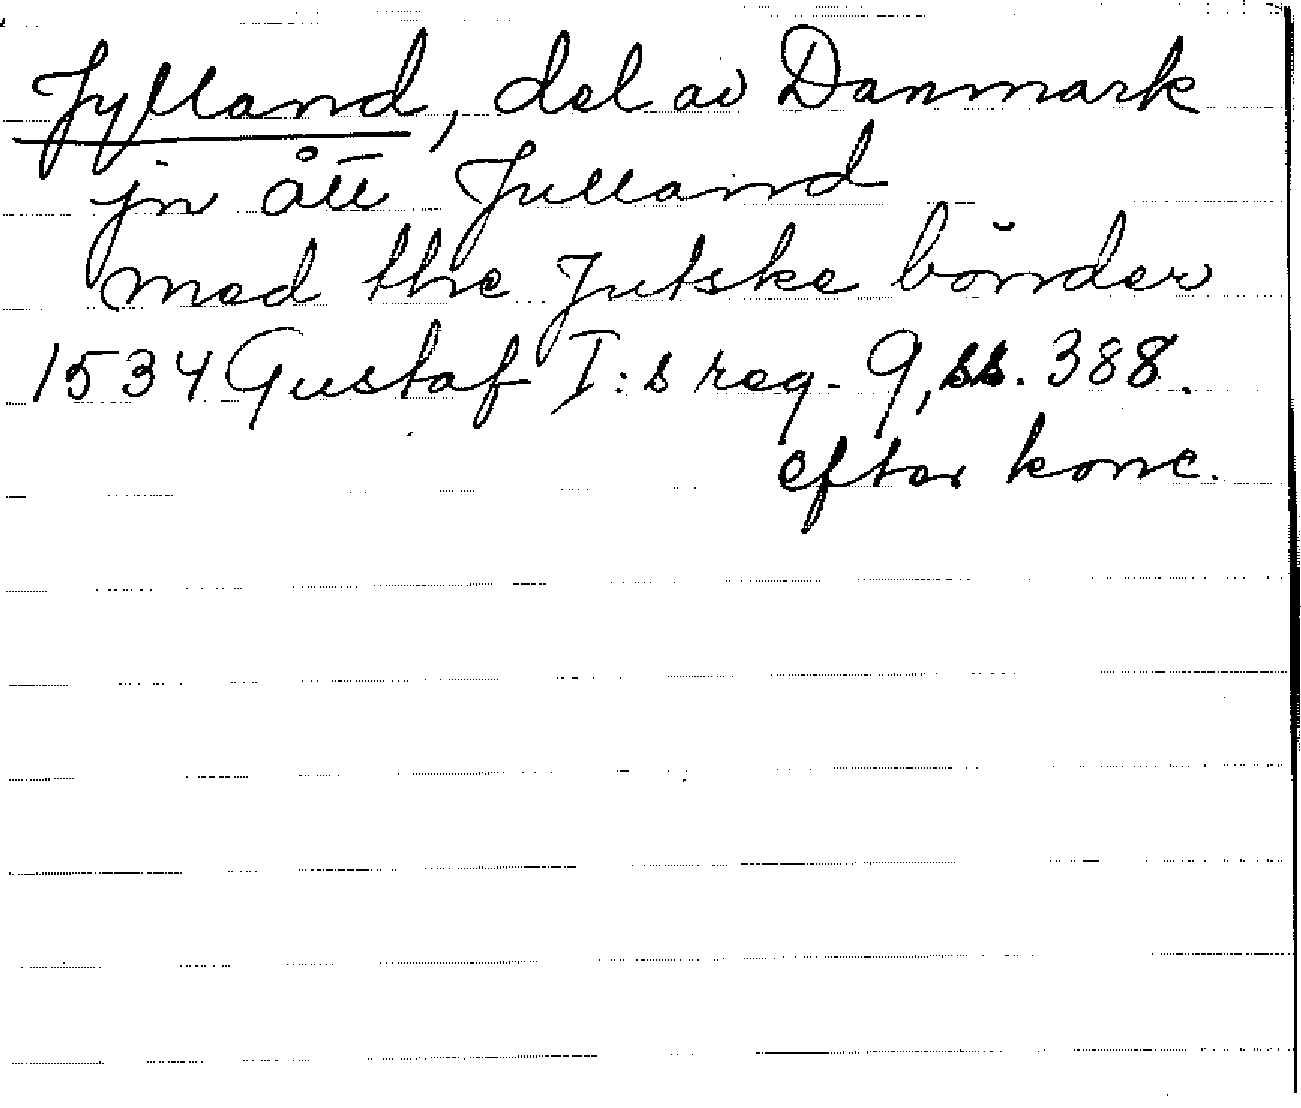 Jylland, del av Danmark
jnått Jutland
med the Jutske bönder
1534 Gustaf I:s reg. 9, ss. 388.
efter konc.